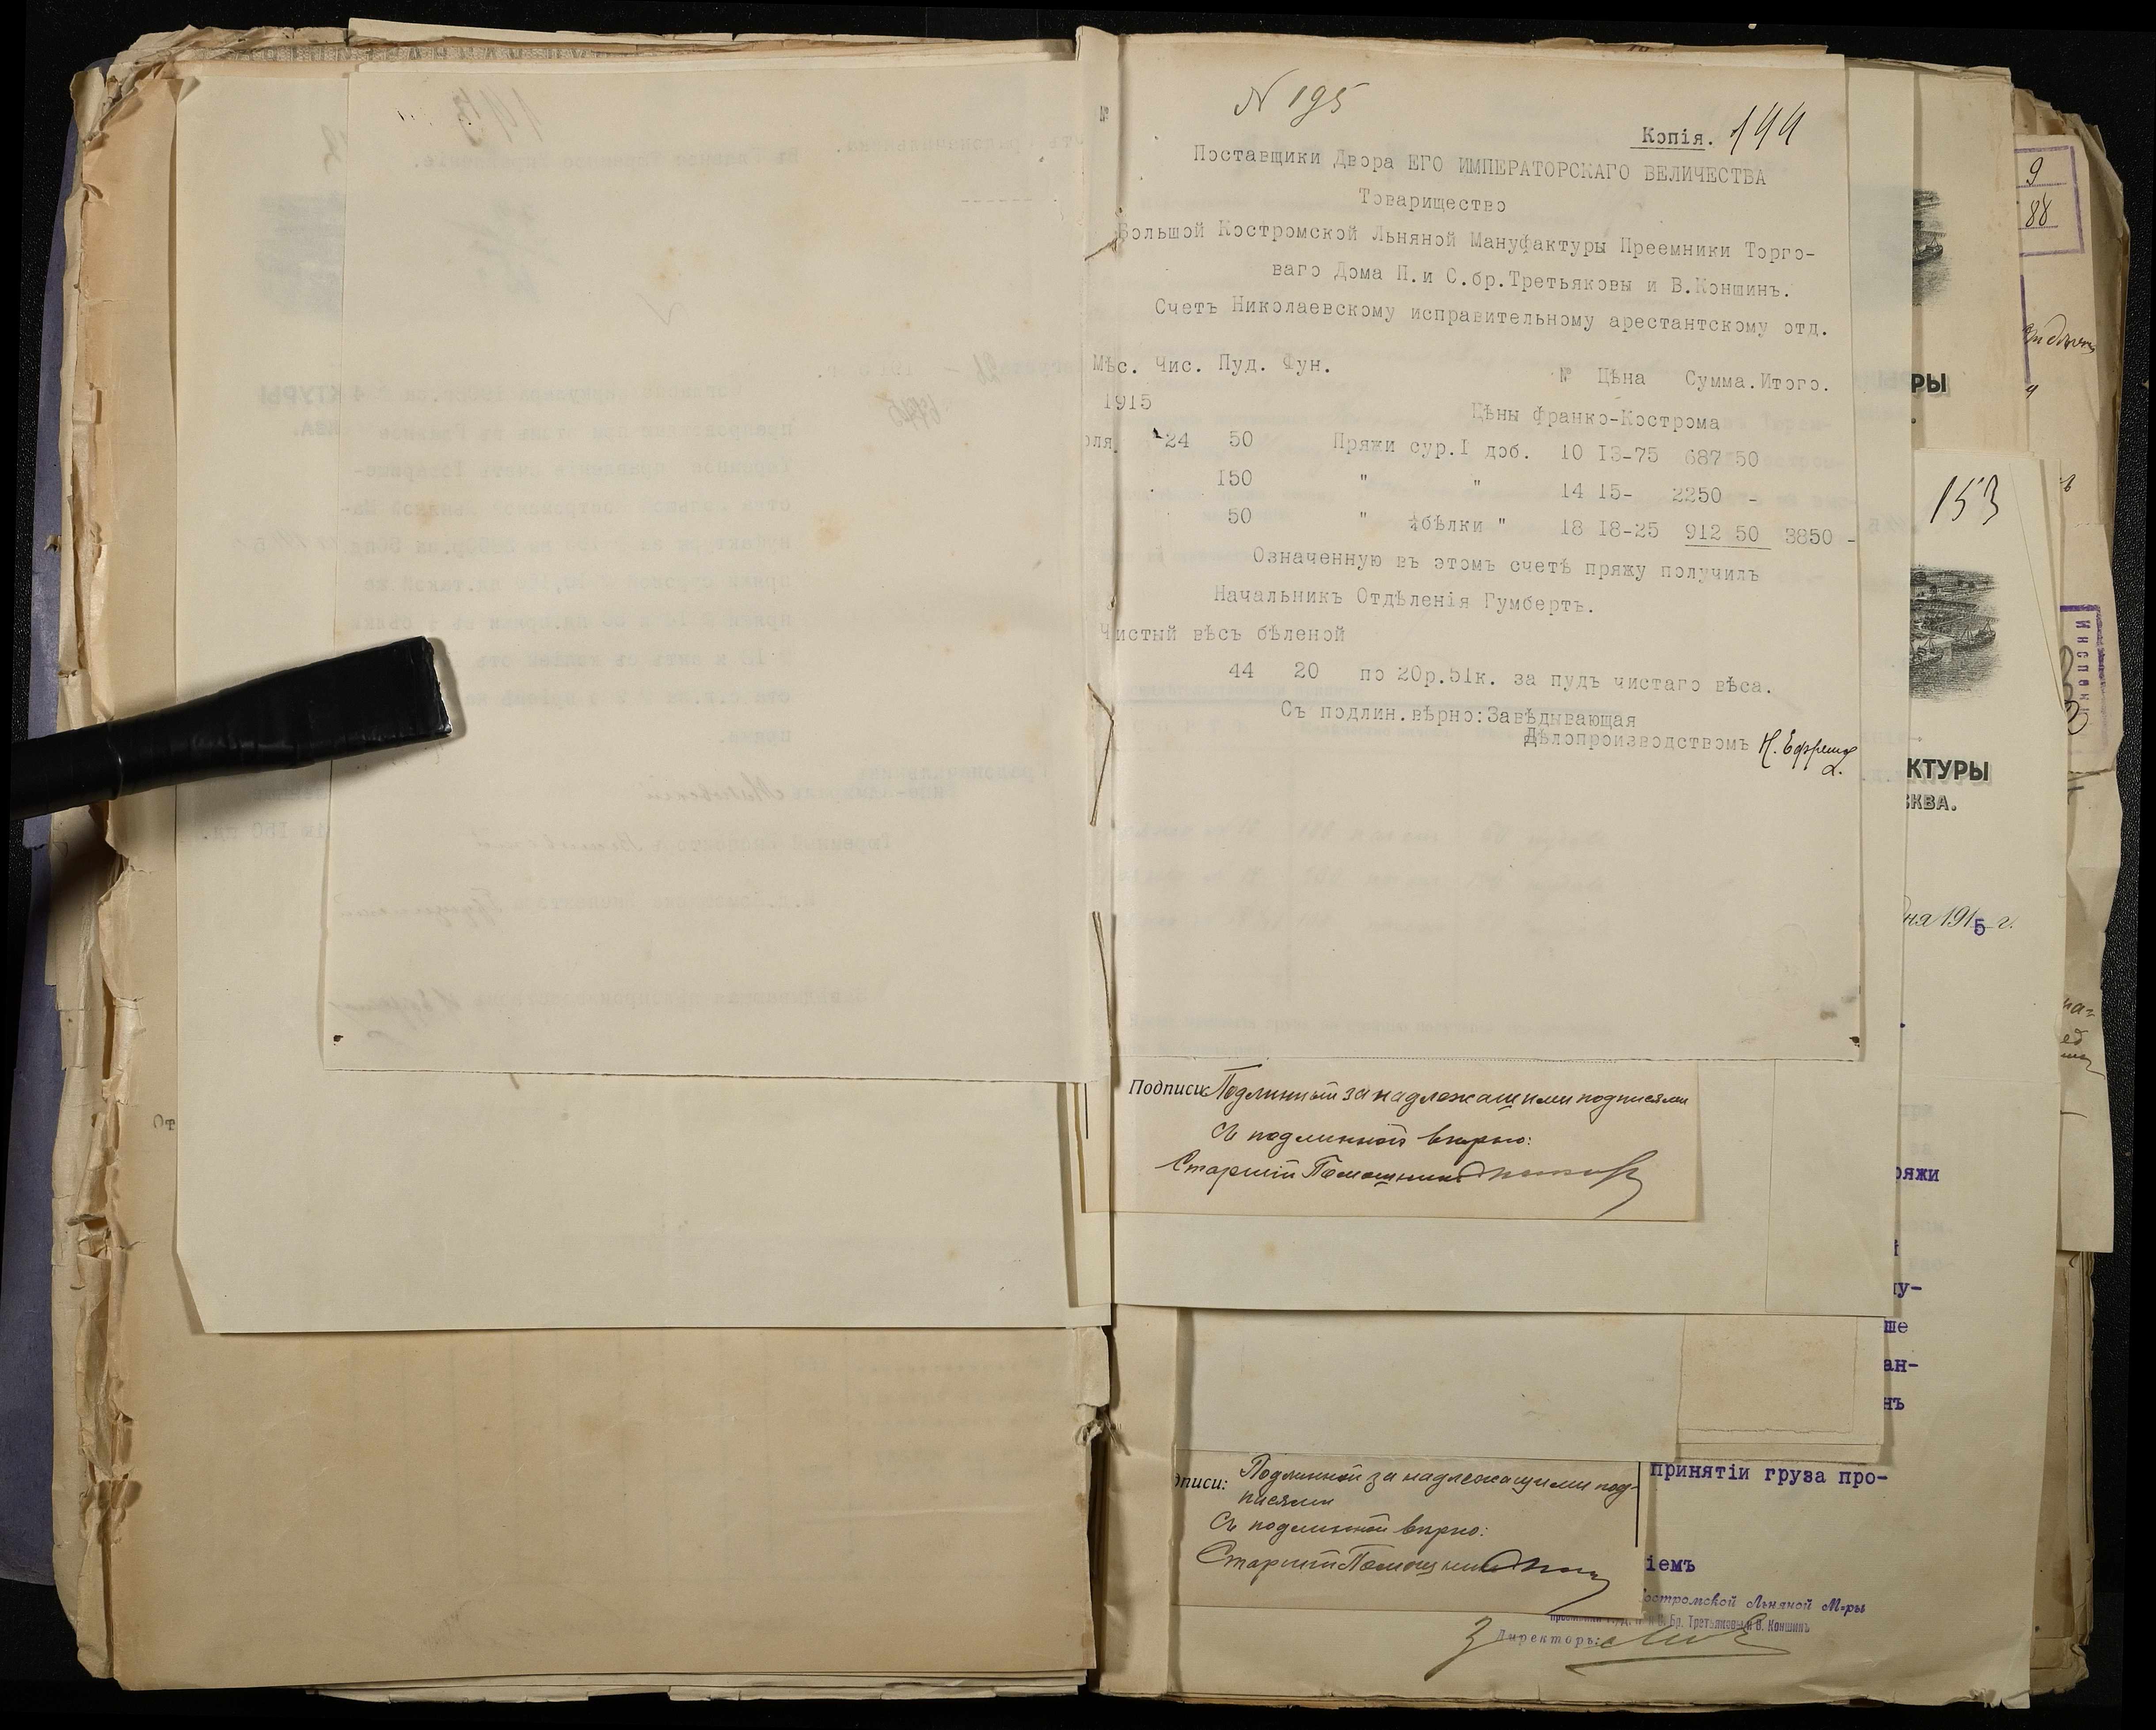 N 195
Копія. 144
Поставщики Двора ЕГО ИМПЕРАТОРСКАГО ВЕЛИЧЕСТВА
Товарищество
Большой Костромской Льняной Мануфактуры Преемники Торго-
ваго Дома П.и С.бр.Третьяковы и В.Коншинъ.
Счетъ Николаевскому исправительному арестантскому отд.
Мѣс. Чис. Пуд. Фун. № Цѣна Сумма. Итого.
1915 Цѣны франко-Кострома
оля 24 50 Пряжи сур.I доб. 10 13-75 687 50
150 " " 14 15- 2250 -
50 " ¼бѣлки " 18 18-25 912 50 3850 -
Означенную въ этомъ счетѣ пряжу получилъ
Начальникъ Отдѣленія Гумбертъ.
Чистый вѣсъ бѣленой
44 20 по 20р.51к. за пудъ чистаго вѣса.
Съ подлин.вѣрно:Завѣдывающая
Дѣлопроизводствомъ
Подписи: Подлинный за надлежащими подписями
Съ подлинной вѣрно:
Старшій Помощникъ
писи: Подлинной за надлежащими под-
писями
Съ подлинной вѣрно:
Старшій Помощникъ
9
88
РЫ
153
Инспек
КТУРЫ
СКВА.
ня 1915 г.
ряжи
у-
ше
ан-
нъ
принятіи груза про-
іемъ
остромской Льняной М-ры
Бр. Третьяковы и В. Коншинъ
Директоръ: